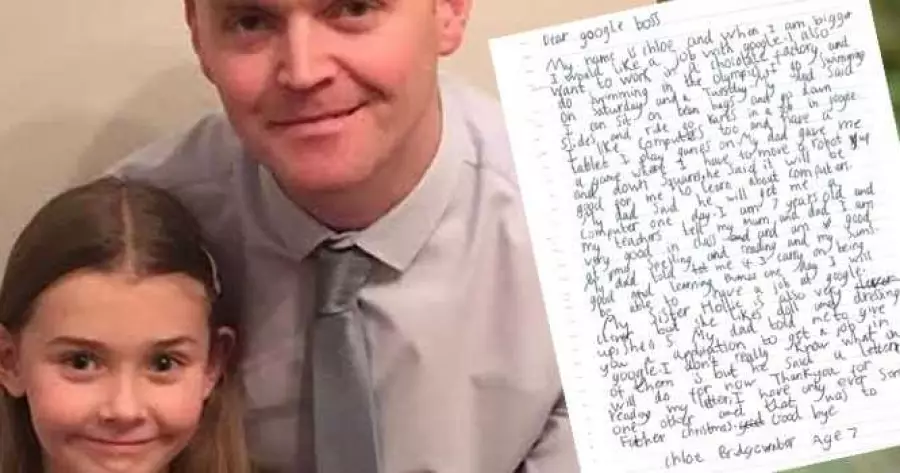 Dear google boss
My name is chloe and when I am bigger
I would like a job with google. I also
want to work in a chocolate factory and
do swimming in the olympics. I go swimming
on Saturday and a Tuesday. My dad said
I can sit on bean bags and go down
slides and ride go karts in a job in google
I like computers too and have a
tablet I play games on. My dad gave me
a game where I have to move a robot up
and down squares, he said it will be
good for me to learn about computers.
My dad said he will get me a
computer one day. I am 7 years old and
my teachers tell my mum and dad I am
very good in class and am good
at my spelling and reading and my sums.
my dad told me if I carry on being
good and learning then one day I will
be able to have a job at google.
My sister Hollie is also very
clever but she likes dolls and dressing
up, she is 5. My dad told me to give
you a application to get a job in
google. I don't really know what one
of them is but he said a letter
will do for now. Thank you for
reading my letter, I have only ever sent
one other and that was to
Father christmas. Good bye
chloe Bridgewater Age 7